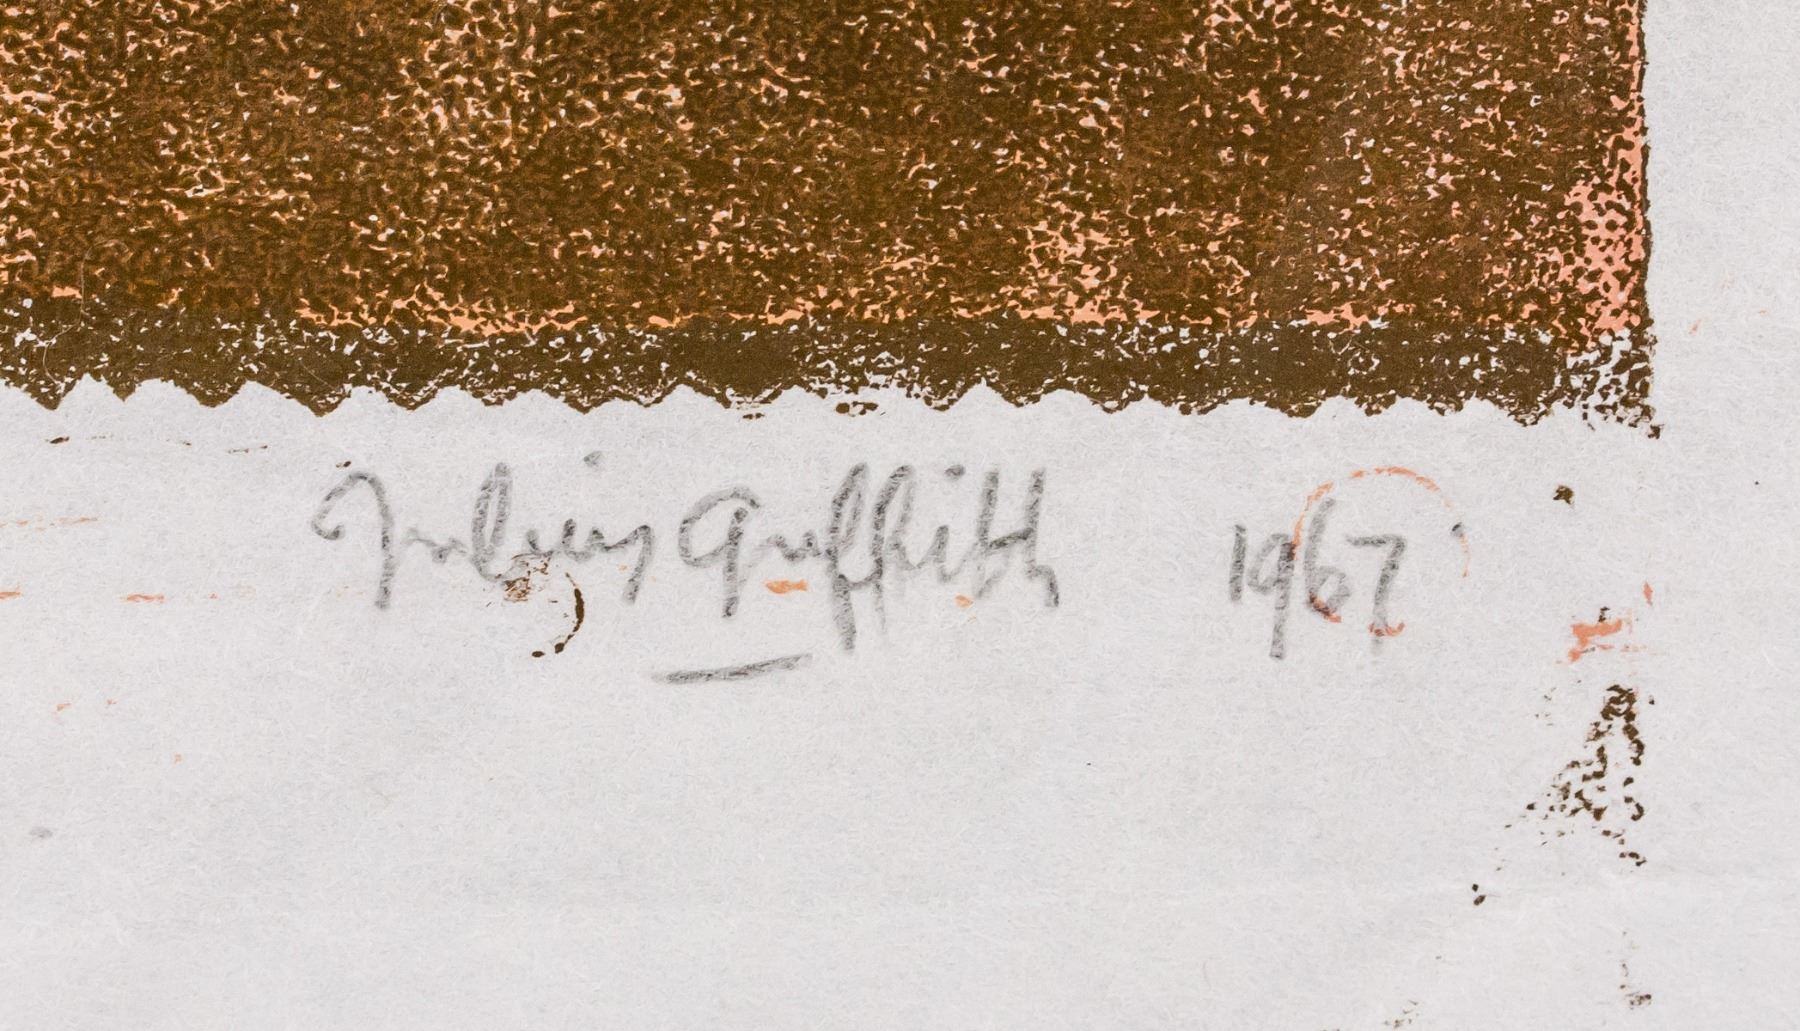 Julius Griffith 1967